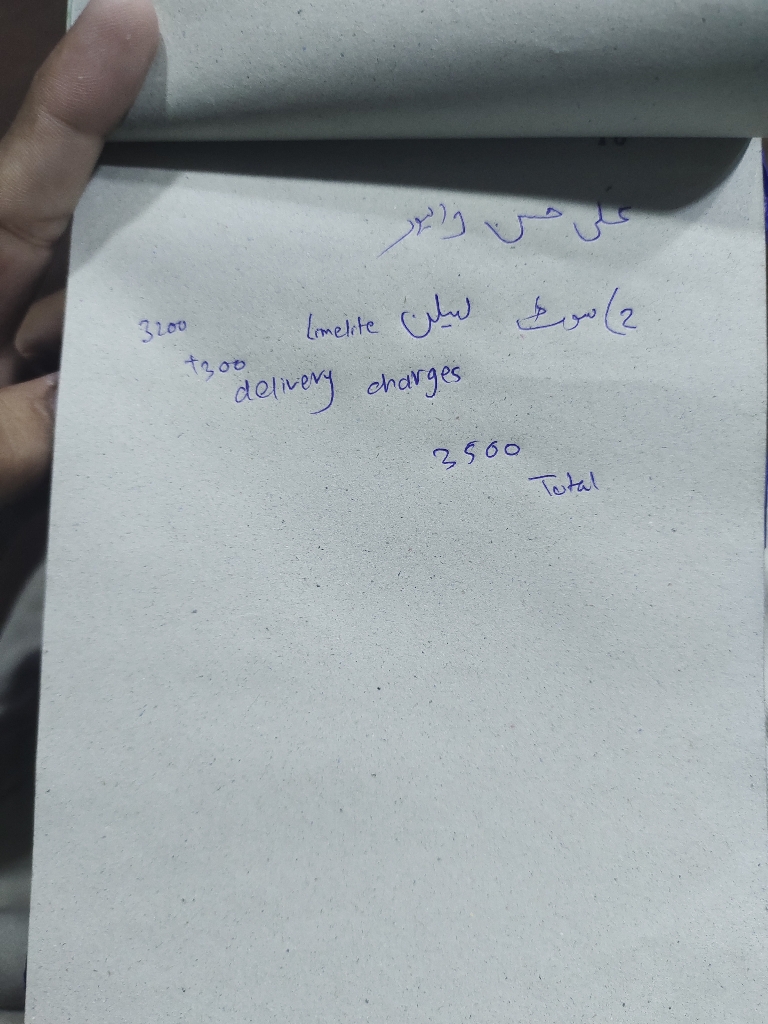 علی حسن
2) سوٹ لیلن Limelite 3200
+300
delivery charges
3500
Total